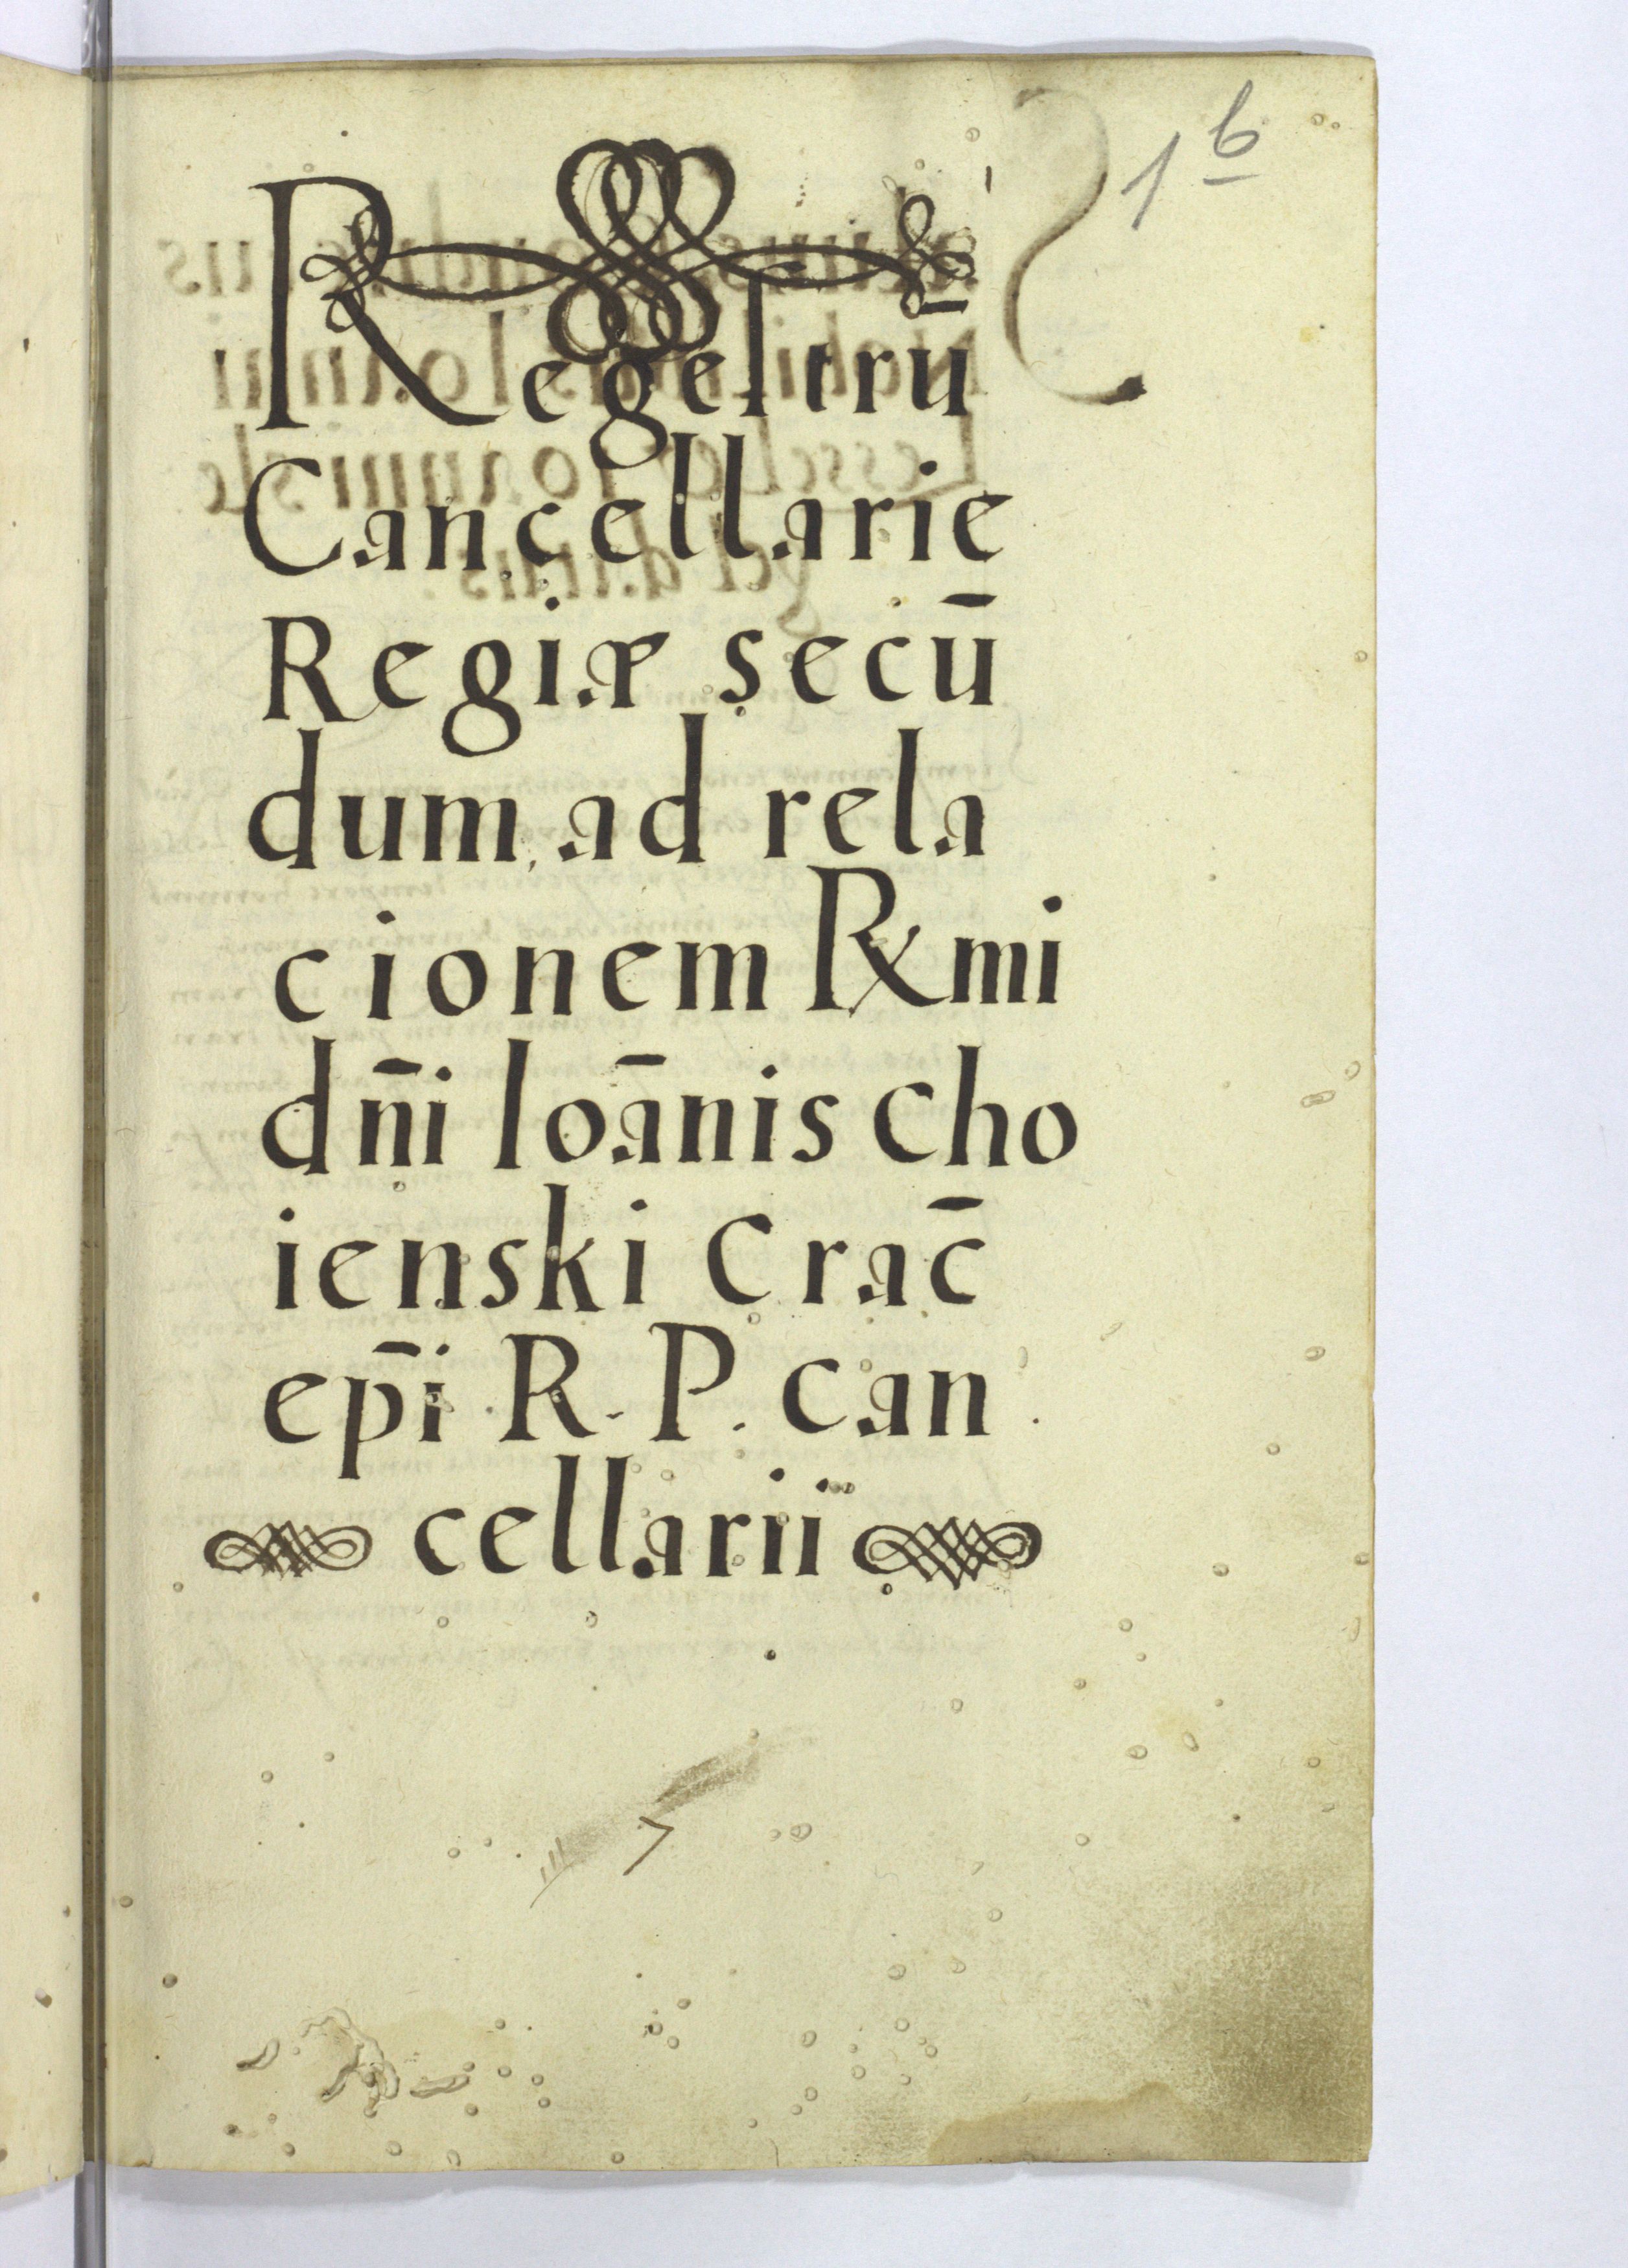 1 b
Regeſtrū
Cancellarie
Regiæ secū
dum ad rela
cionem R̃mi
dn̄i Ioānis Cho
ienski Crac̄
ep̄i R. P. Can
cellarii
7